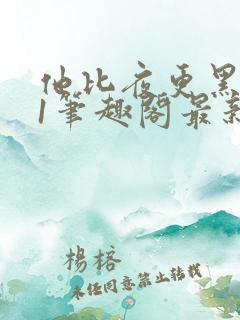 他比夜更黑
1笔趣阁最新
楊榕
未经同意禁止转载